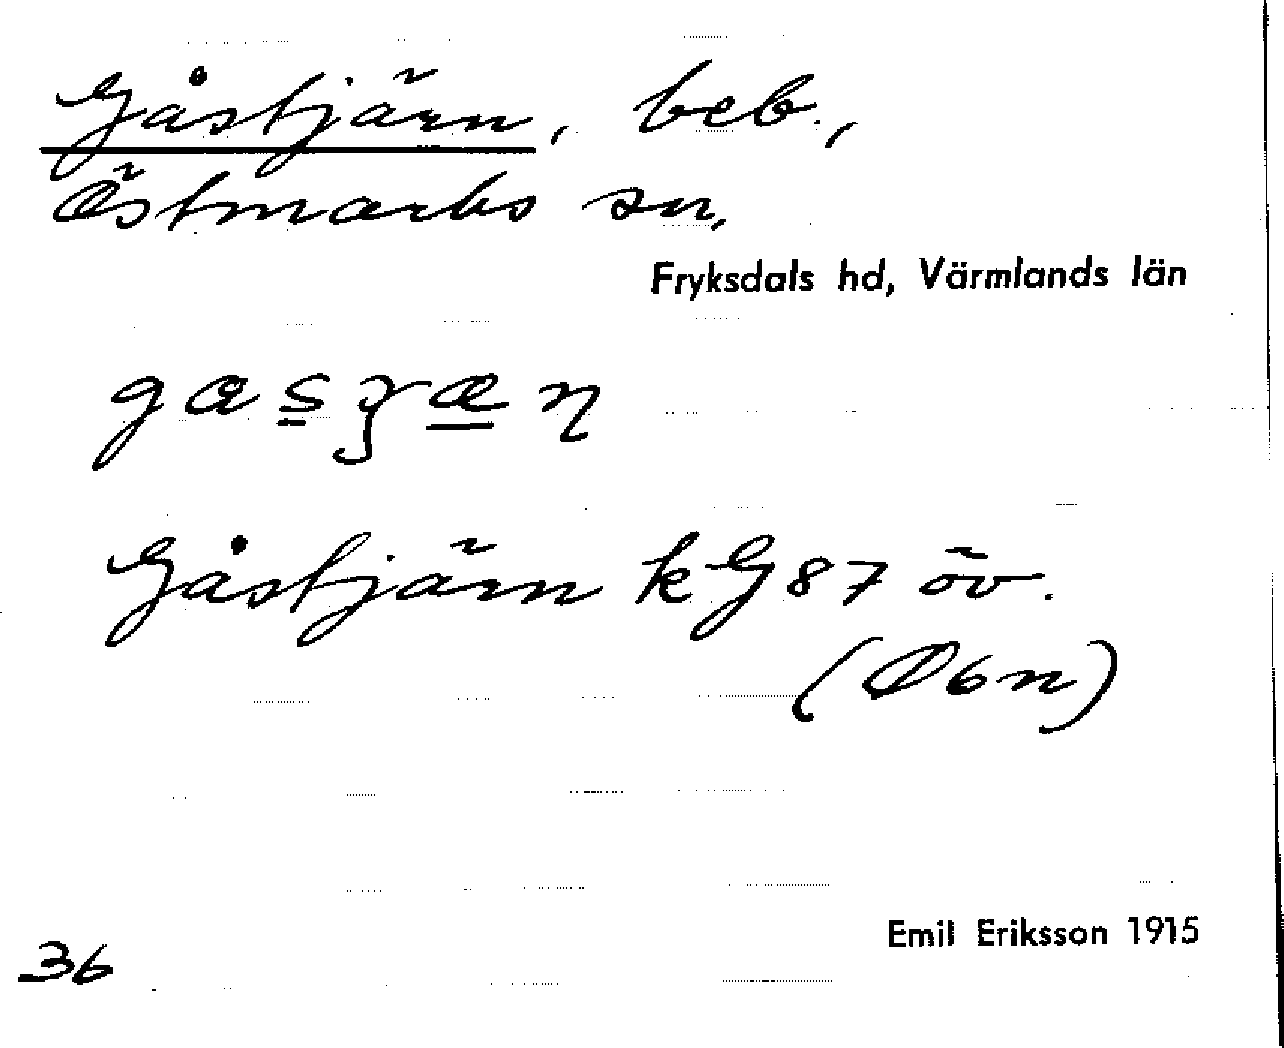 Gåstjärn, beb.,
Östmarks sn,
Fryksdals hd, Värmlands län
Gåstjärn kG87 öv.
Emil Eriksson 1915
36